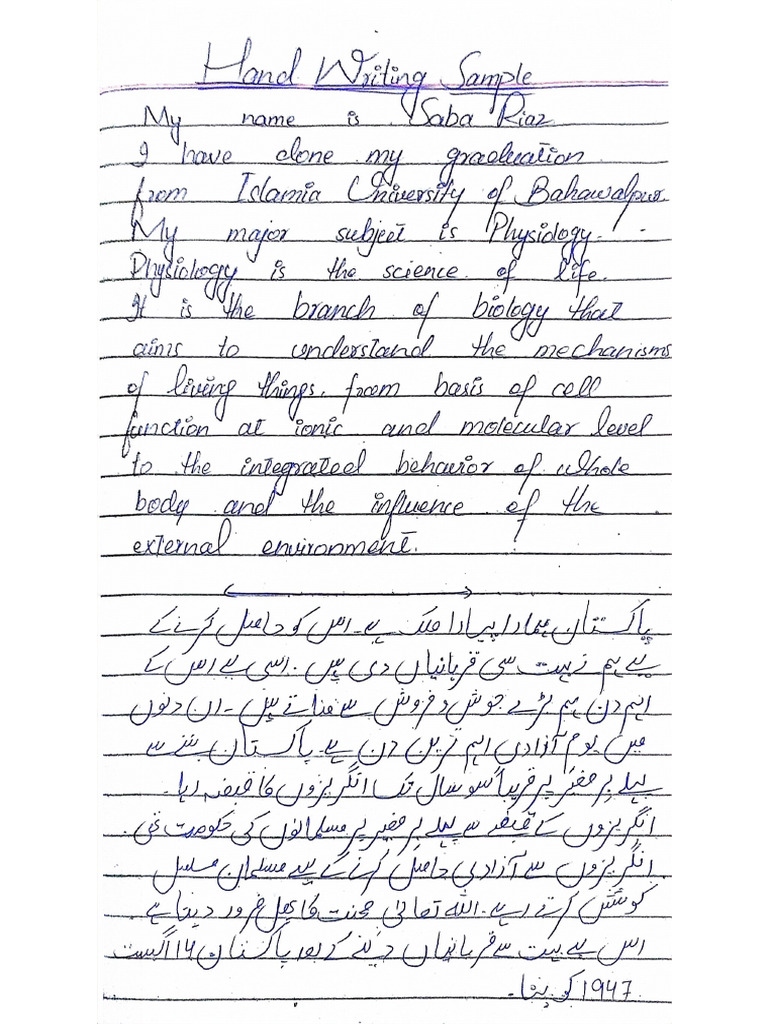 Hand Writing Sample
My name is Saba Riaz
I have done my graduation
from Islamia University of Bahawalpur.
My major subject is Physiology.
Physiology is the science of life.
It is the branch of biology that
aims to understand the mechanisms
of living things, from basis of cell
function at ionic and molecular level
to the integrated behavior of whole
body and the influence of the
external environment.
پاکستان ہمارا پیارا ملک ہے۔ اس کو حاصل کرنے کے
لیے ہم نے بہت سی قربانیاں دی ہیں۔ اسی لیے اس کے
اہم دن ہم بڑے جوش و خروش سے مناتے ہیں۔ ان دنوں
میں یوم آزادی اہم ترین دن ہے۔ پاکستان بننے سے
پہلے برصغیر پر قریباً سو سال تک انگریزوں کا قبضہ رہا۔
انگریزوں کے قبضہ سے پہلے برصغیر پر مسلمانوں کی حکومت تھی۔
انگریزوں سے آزادی حاصل کرنے کے لیے مسلمان مسلسل
کوشش کرتے رہے۔ اللہ تعالیٰ محنت کا پھل ضرور دیتا ہے۔
اس لیے بہت سے قربانیاں دینے کے بعد پاکستان ۱۴ اگست
1947 کو بنا۔